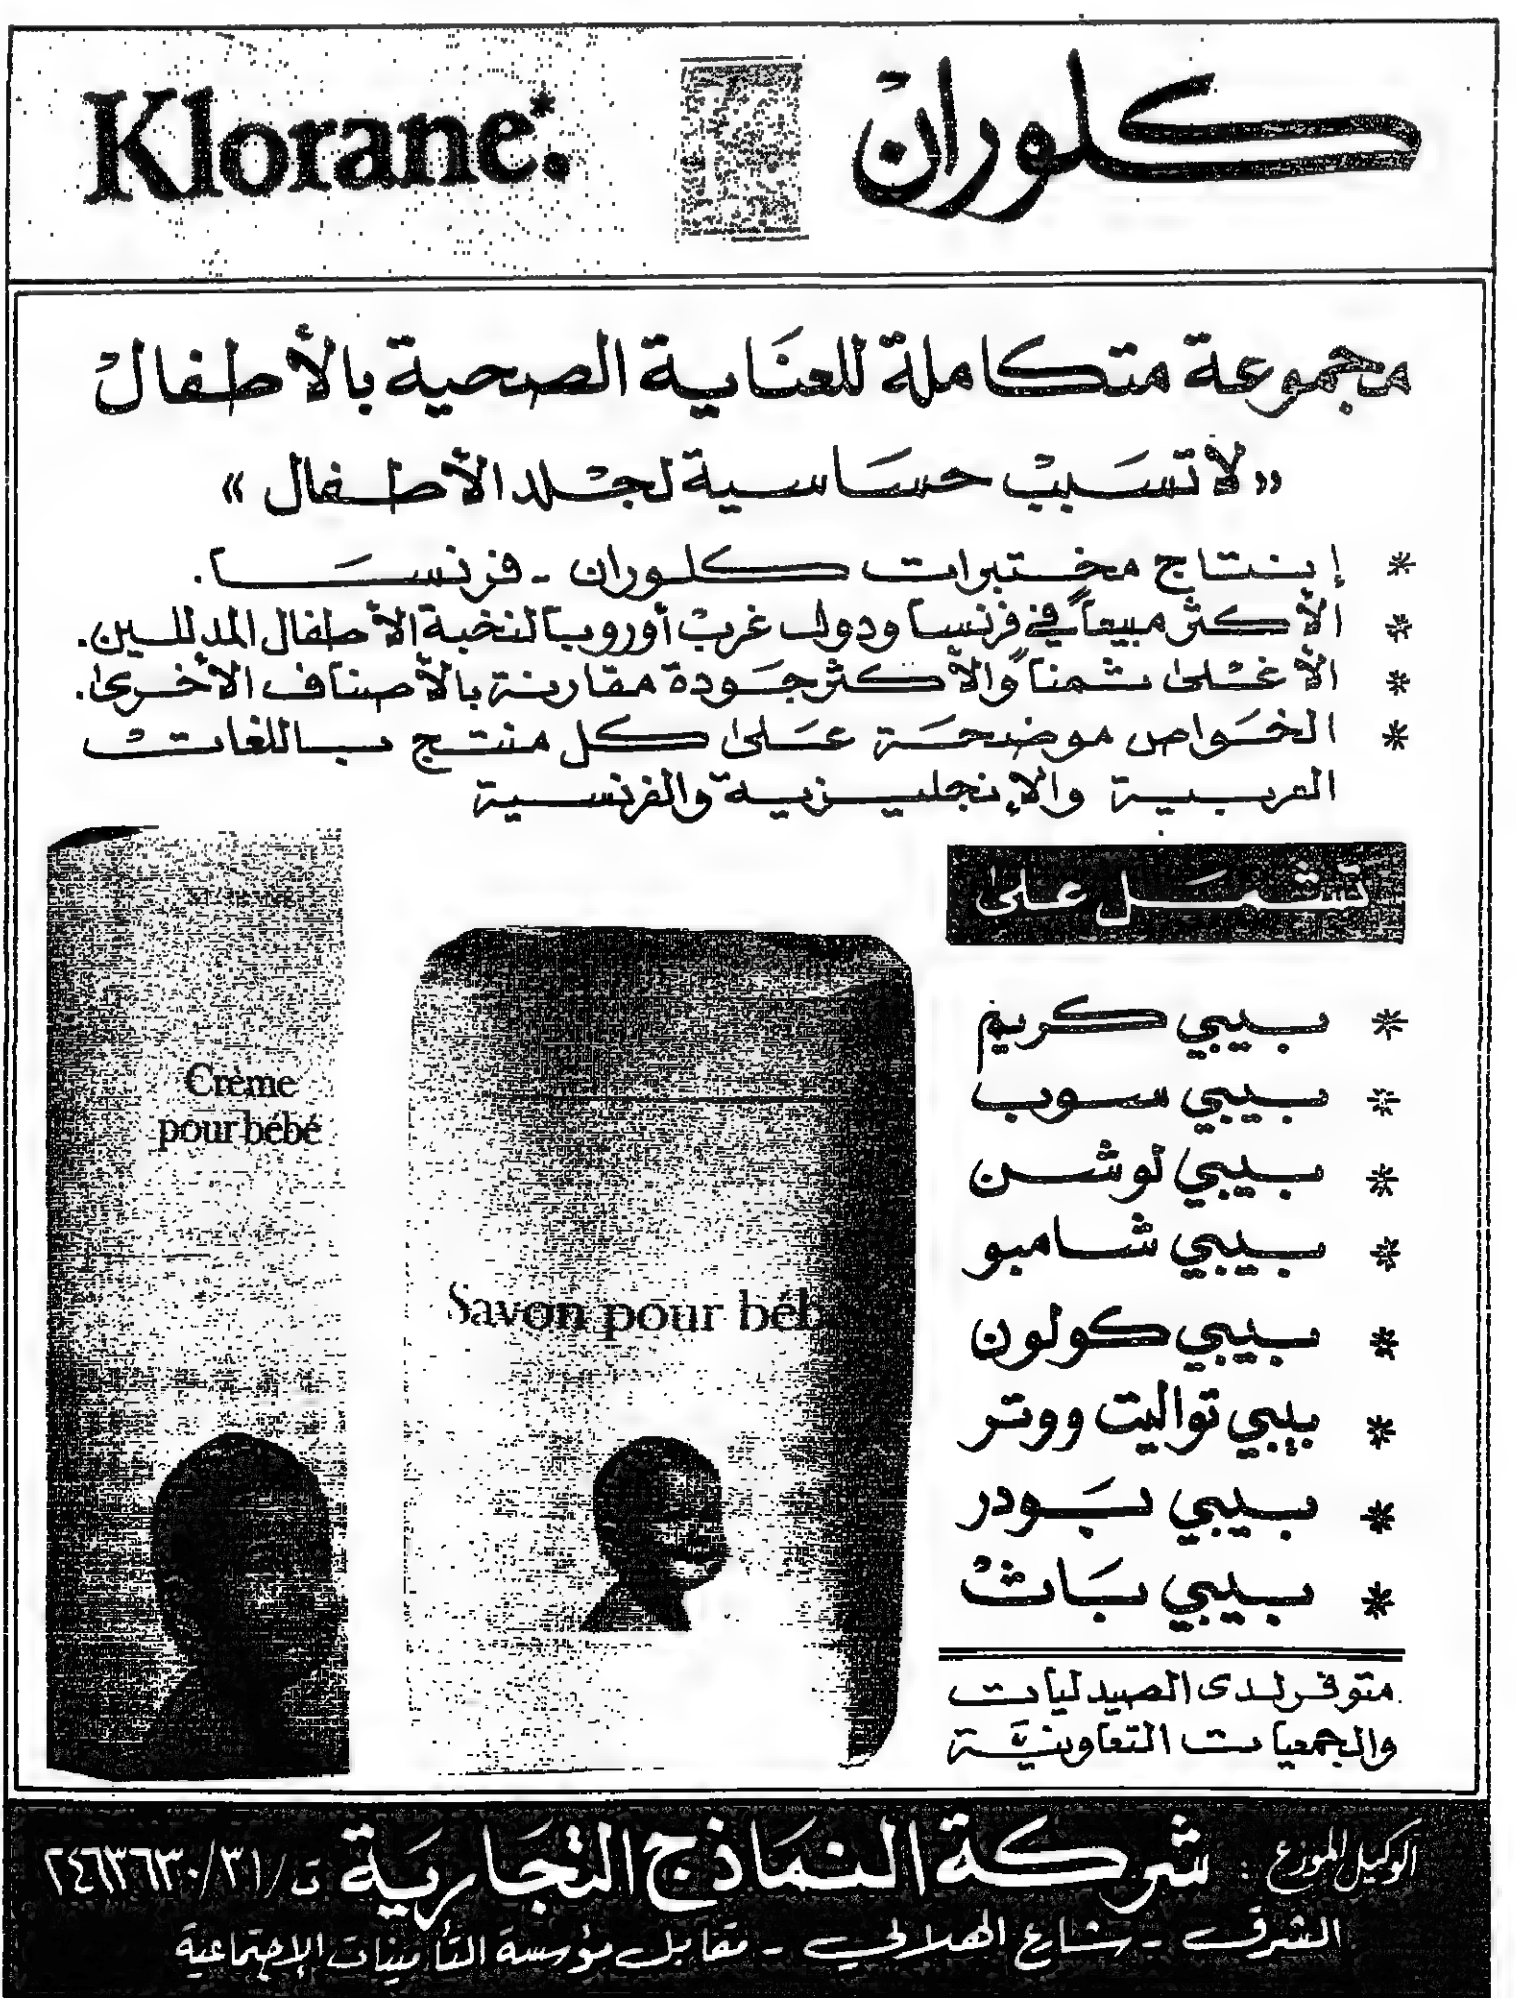 كلوران
Klorane*
مجموعة متكاملة للعناية الصحية بالأطفال
«لا تسبب حساسية لجلد الأطفال»
* إنتاج مختبرات كلوران - فرنسا.
* الأكثر مبيعاً في فرنسا ودول غرب أوروبا لنخبة الأطفال المدللين.
* الأغلى ثمناً والأكثر جودة مقارنة بالأصناف الأخرى.
* الخواص موضحة على كل منتج باللغات
العربية والإنجليزية والفرنسية
تشمل على
* بيبي كريم
* بيبي سوب
* بيبي لوشن
* بيبي شامبو
* بيبي كولون
* بيبي تواليت ووتر
* بيبي بودر
* بيبي باث
متوفر لدى الصيدليات
والجمعيات التعاونية
Crème
pour bébé
Savon pour béb
الوكيل الموزع: شركة النماذج التجارية ت/ ٢٤٦٣٦٣٠/٣١
الشرق - شارع الهلالي - مقابل مؤسسة التأمينات الإجتماعية